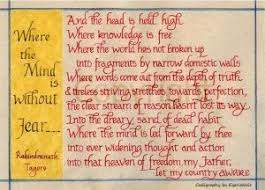 Where
the Mind
is
without
Fear....
Rabindranath
Tagore
And the head is held high
Where knowledge is free
Where the world has not broken up
into fragments by narrow domestic walls
Where words come out from the depth of truth
& tireless striving stretches towards perfection,
the clear stream of reason hasn't lost its way.
Into the dreary sand of dead habit
Where the mind is led forward by thee
into ever widening thought and action
into that heaven of freedom, my Father,
let my country awake
Calligraphy by